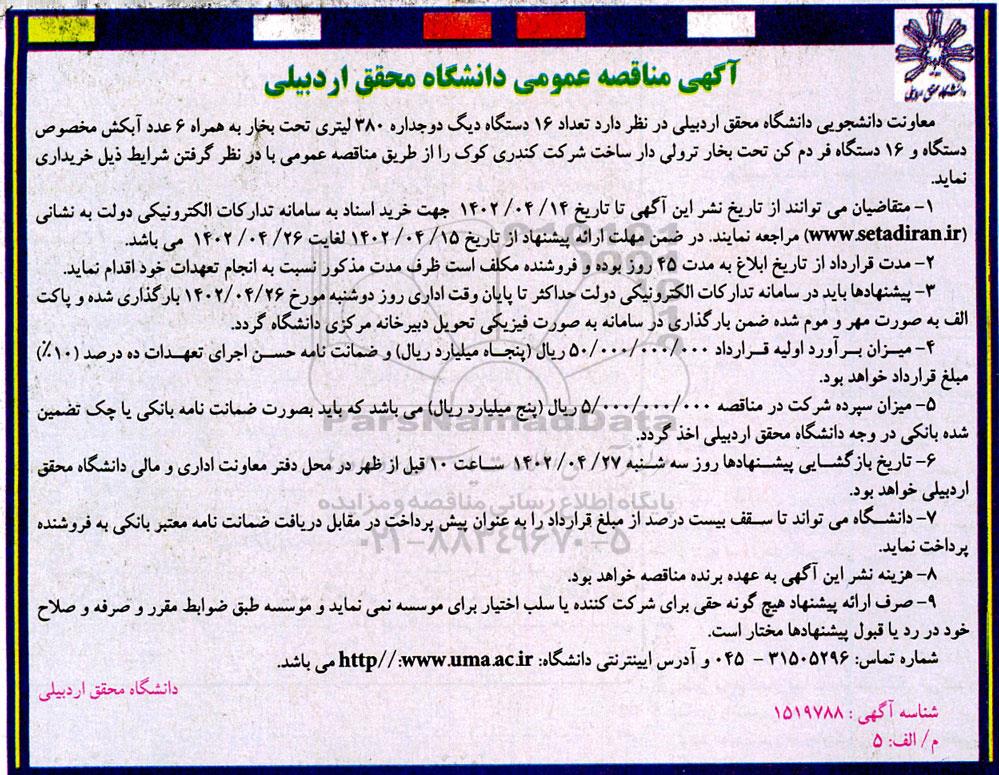 دانشگاه محقق اردبیلی
آگهی مناقصه عمومی دانشگاه محقق اردبیلی
معاونت دانشجویی دانشگاه محقق اردبیلی در نظر دارد تعداد ۱۶ دستگاه دیگ دوجداره ۳۸۰ لیتری تحت بخار به همراه ۶ عدد آبکش مخصوص
دستگاه و ۱۶ دستگاه فر دم کن تحت بخار ترولی دار ساخت شرکت کندری کوک را از طریق مناقصه عمومی با در نظر گرفتن شرایط ذیل خریداری
نماید.
۱- متقاضیان می توانند از تاریخ نشر این آگهی تا تاریخ ۱۴/ ۰۴/ ۱۴۰۲ جهت خرید اسناد به سامانه تدارکات الکترونیکی دولت به نشانی
(www.setadiran.ir) مراجعه نمایند. در ضمن مهلت ارائه پیشنهاد از تاریخ ۱۵/ ۰۴/ ۱۴۰۲ لغایت ۲۶/ ۰۴/ ۱۴۰۲ می باشد.
۲- مدت قرارداد از تاریخ ابلاغ به مدت ۴۵ روز بوده و فروشنده مکلف است ظرف مدت مذکور نسبت به انجام تعهدات خود اقدام نماید.
۳- پیشنهادها باید در سامانه تدارکات الکترونیکی دولت حداکثر تا پایان وقت اداری روز دوشنبه مورخ ۱۴۰۲/۰۴/۲۶ بارگذاری شده و پاکت
الف به صورت مهر و موم شده ضمن بارگذاری در سامانه به صورت فیزیکی تحویل دبیرخانه مرکزی دانشگاه گردد.
۴- میزان برآورد اولیه قرارداد ۵۰/۰۰۰/۰۰۰/۰۰۰ ریال (پنجاه میلیارد ریال) و ضمانت نامه حسن اجرای تعهدات ده درصد (۱۰٪)
مبلغ قرارداد خواهد بود.
۵- میزان سپرده شرکت در مناقصه ۵/۰۰۰/۰۰۰/۰۰۰ ریال (پنج میلیارد ریال) می باشد که باید بصورت ضمانت نامه بانکی یا چک تضمین
شده بانکی در وجه دانشگاه محقق اردبیلی اخذ گردد.
۶- تاریخ بازگشایی پیشنهادها روز سه شنبه ۲۷/ ۰۴/ ۱۴۰۲ ساعت ۱۰ قبل از ظهر در محل دفتر معاونت اداری و مالی دانشگاه محقق
اردبیلی خواهد بود.
۷- دانشگاه می تواند تا سقف بیست درصد از مبلغ قرارداد را به عنوان پیش پرداخت در مقابل دریافت ضمانت نامه معتبر بانکی به فروشنده
پرداخت نماید.
۸- هزینه نشر این آگهی به عهده برنده مناقصه خواهد بود.
۹- صرف ارائه پیشنهاد هیچ گونه حقی برای شرکت کننده یا سلب اختیار برای موسسه نمی نماید و موسسه طبق ضوابط مقرر و صرفه و صلاح
خود در رد یا قبول پیشنهادها مختار است.
شماره تماس: ۳۱۵۰۵۲۹۶ - ۰۴۵ و آدرس اینترنتی دانشگاه: http//:www.uma.ac.ir می باشد.
دانشگاه محقق اردبیلی
شناسه آگهی : ۱۵۱۹۷۸۸
م/ الف: ۵
ParsNamadData
پایگاه اطلاع رسانی مناقصه و مزایده
۰۲۱-۸۸۳۴۹۶۷۰-۵